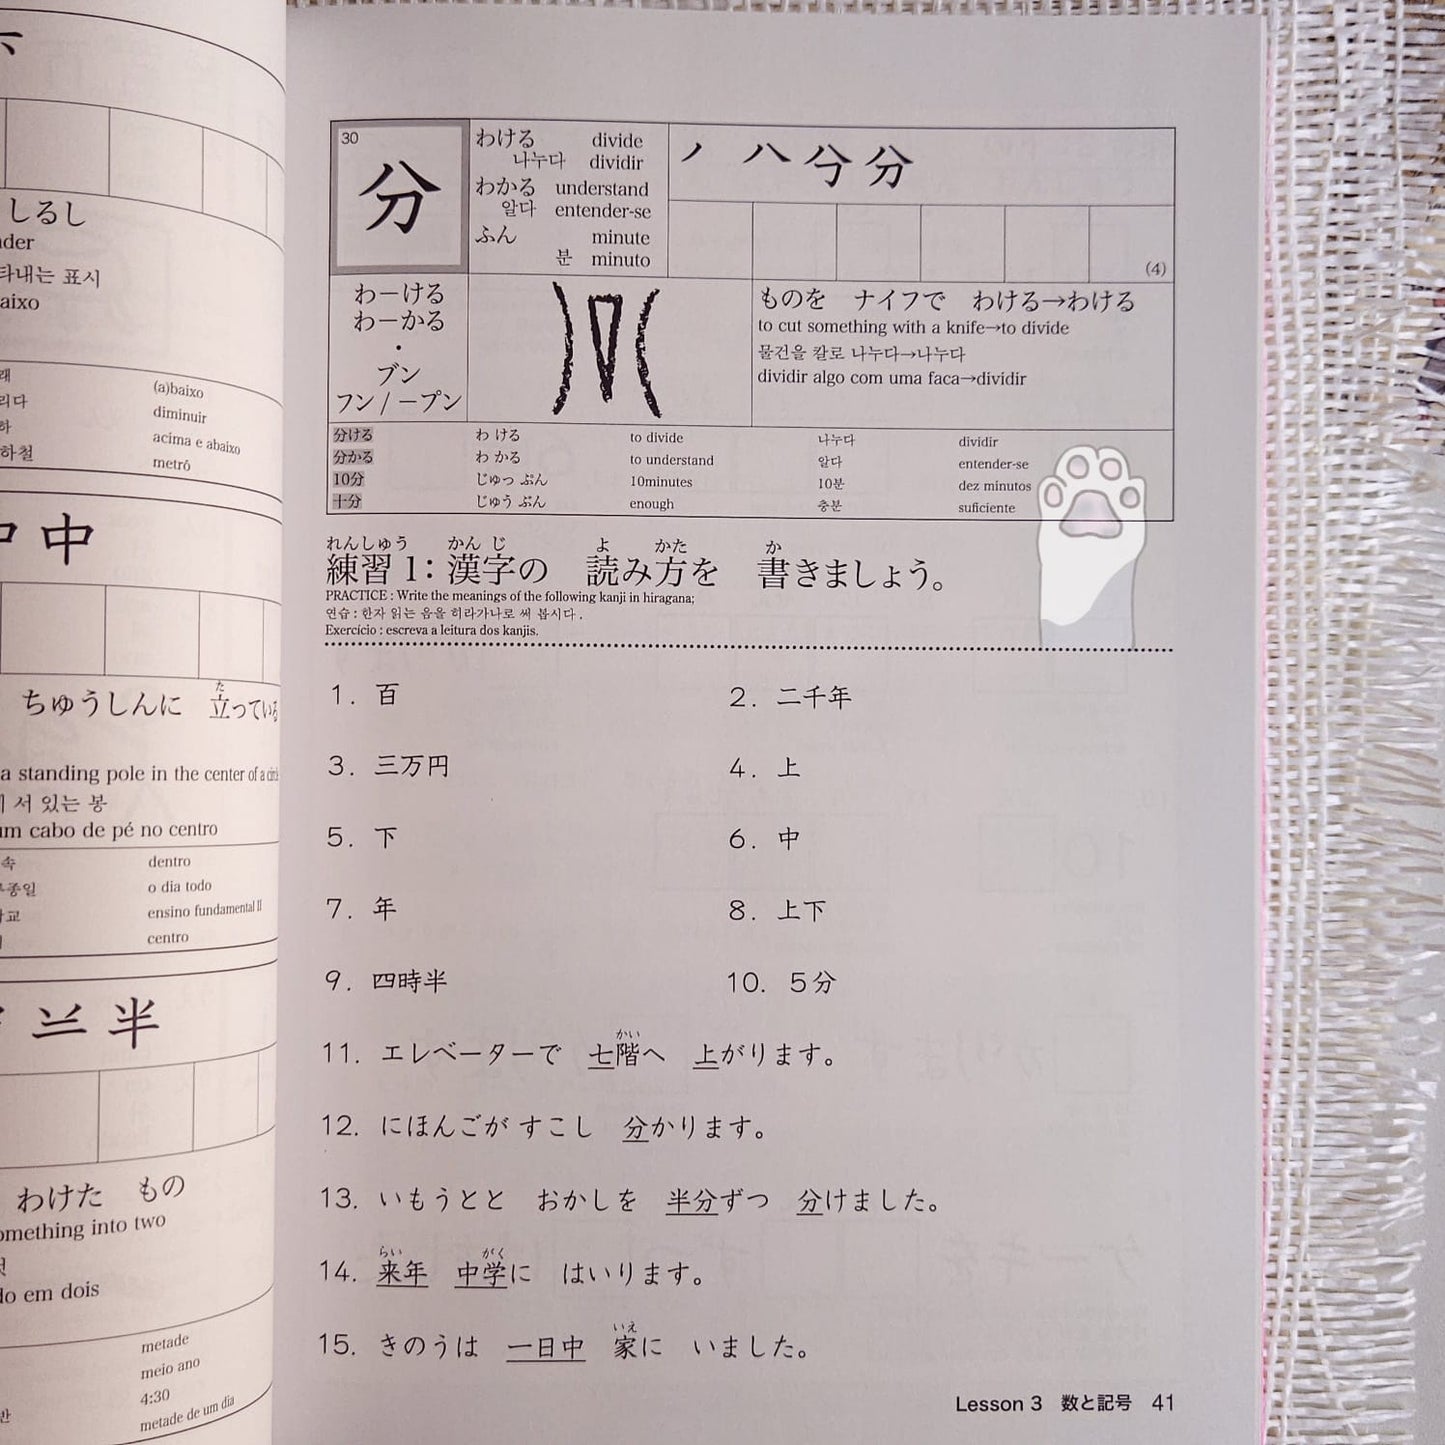 しるし
타내는 표시
(a)baixo
diminuir
acima e abaixo
metrô
中
ちゅうしんに 立っている
た
a standing pole in the center of a
서 있는 봉
um cabo de pé no centro
dentro
o dia todo
ensino fundamental II
centro
半
わけた もの
something into two
em dois
metade
meio ano
4:30
metade de um dia
30
分
わける divide
나누다 dividir
わかる understand
알다 entender-se
ふん minute
분 minuto
ノ ハ 今 分
(4)
わ－ける
わ－かる
・
ブン
フン / －プン
ものを ナイフで わける→わける
to cut something with a knife→to divide
물건을 칼로 나누다→나누다
dividir algo com uma faca→dividir
分ける わ ける to divide 나누다 dividir
分かる わ かる to understand 알다 entender-se
10分 じゅっ ぷん 10minutes 10분 dez minutos
十分 じゅう ぶん enough 충분 suficiente
れんしゅう かん じ よ かた か
練習 1: 漢字の 読み方を 書きましょう。
PRACTICE : Write the meanings of the following kanji in hiragana;
연습 : 한자 읽는 음을 히라가나로 써 봅시다 .
Exercício : escreva a leitura dos kanjis.
1. 百
2. 二千年
3. 三万円
4. 上
5. 下
6. 中
7. 年
8. 上下
9. 四時半
10. 5分
かい
11. エレベーターで 七階へ 上がります。
12. にほんごが すこし 分かります。
13. いもうとと おかしを 半分ずつ 分けました。
らい がく
14. 来年 中学に はいります。
いえ
15. きのうは 一日中 家に いました。
Lesson 3 数と記号 41